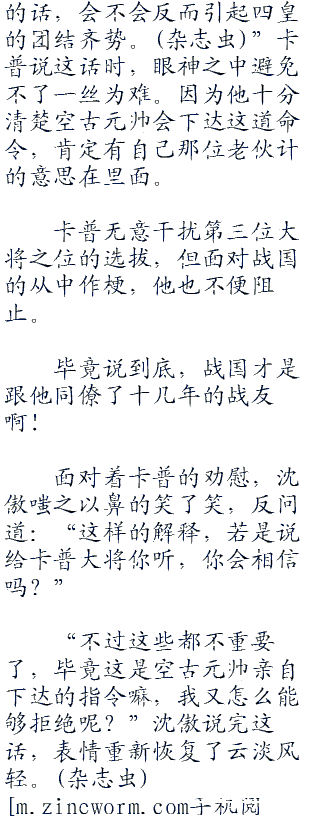 的话，会不会反而引起四皇
的团结齐势。(杂志虫)”卡
普说这话时，眼神之中避免
不了一丝为难。因为他十分
清楚空古元帅会下达这道命
令，肯定有自己那位老伙计
的意思在里面。
卡普无意干扰第三位大
将之位的选拔，但面对战国
的从中作梗，他也不便阻
止。
毕竟说到底，战国才是
跟他同僚了十几年的战友
啊！
面对着卡普的劝慰，沈
傲嗤之以鼻的笑了笑，反问
道：“这样的解释，若是说
给卡普大将你听，你会相信
吗？”
“不过这些都不重要
了，毕竟这是空古元帅亲自
下达的指令嘛，我又怎么能
够拒绝呢？”沈傲说完这
话，表情重新恢复了云淡风
轻。(杂志虫)
[m.zincworm.com手机阅